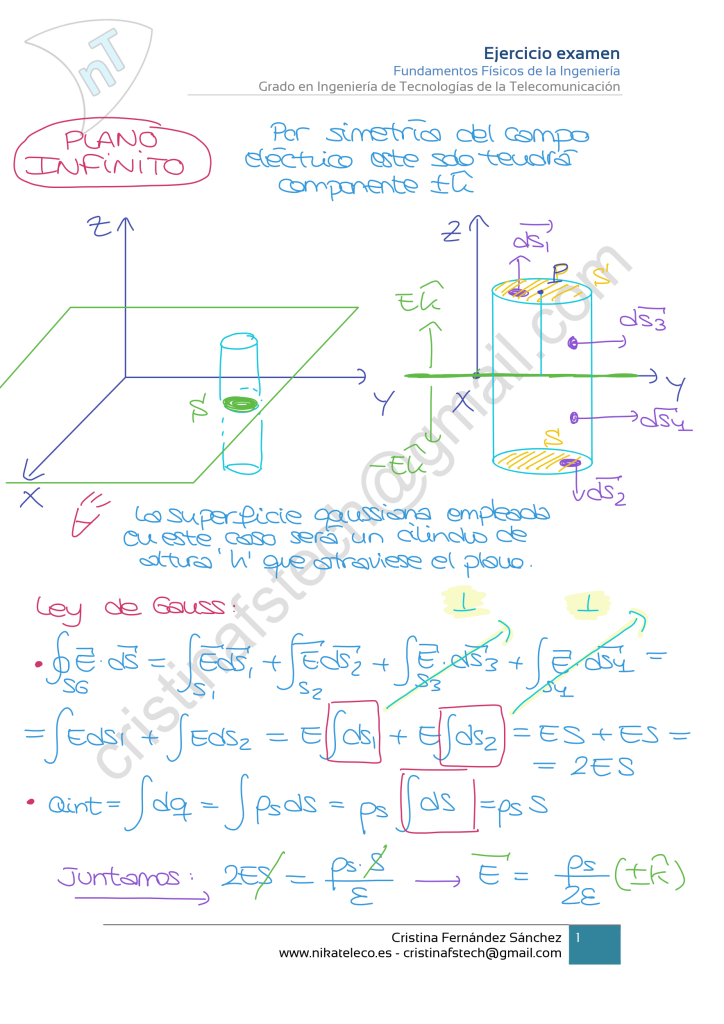 nT
Ejercicio examen
Fundamentos Físicos de la Ingeniería
Grado en Ingeniería de Tecnologías de la Telecomunicación
PLANO
INFINITO
Por simetría del campo
eléctrico este solo tendrá
componente ±k̂
Z
Y
X
S
Z
dS⃗₁
P
S
Ek̂
dS⃗₃
Y
X
dS⃗₄
S
-Ek̂
dS⃗₂
La superficie gaussiana empleada
en este caso será un cilindro de
altura 'h' que atraviese el plano.
Ley de Gauss:
⊥ ⊥
• ∮SG E⃗·dS⃗ = ∫S₁ E⃗dS⃗₁ + ∫S₂ E⃗dS⃗₂ + ∫S₃ E⃗·dS⃗₃ + ∫S₄ E⃗·dS⃗₄ =
= ∫EdS₁ + ∫EdS₂ = E∫dS₁ + E∫dS₂ = ES + ES =
= 2ES
• Qint = ∫dq = ∫ρs dS = ρs ∫dS = ρs S
Juntamos: 2ES = ρs·S/ε → E⃗ = ρs/2ε (±k̂)
cristinafstech@gmail.com
Cristina Fernández Sánchez 1
www.nikateleco.es - cristinafstech@gmail.com